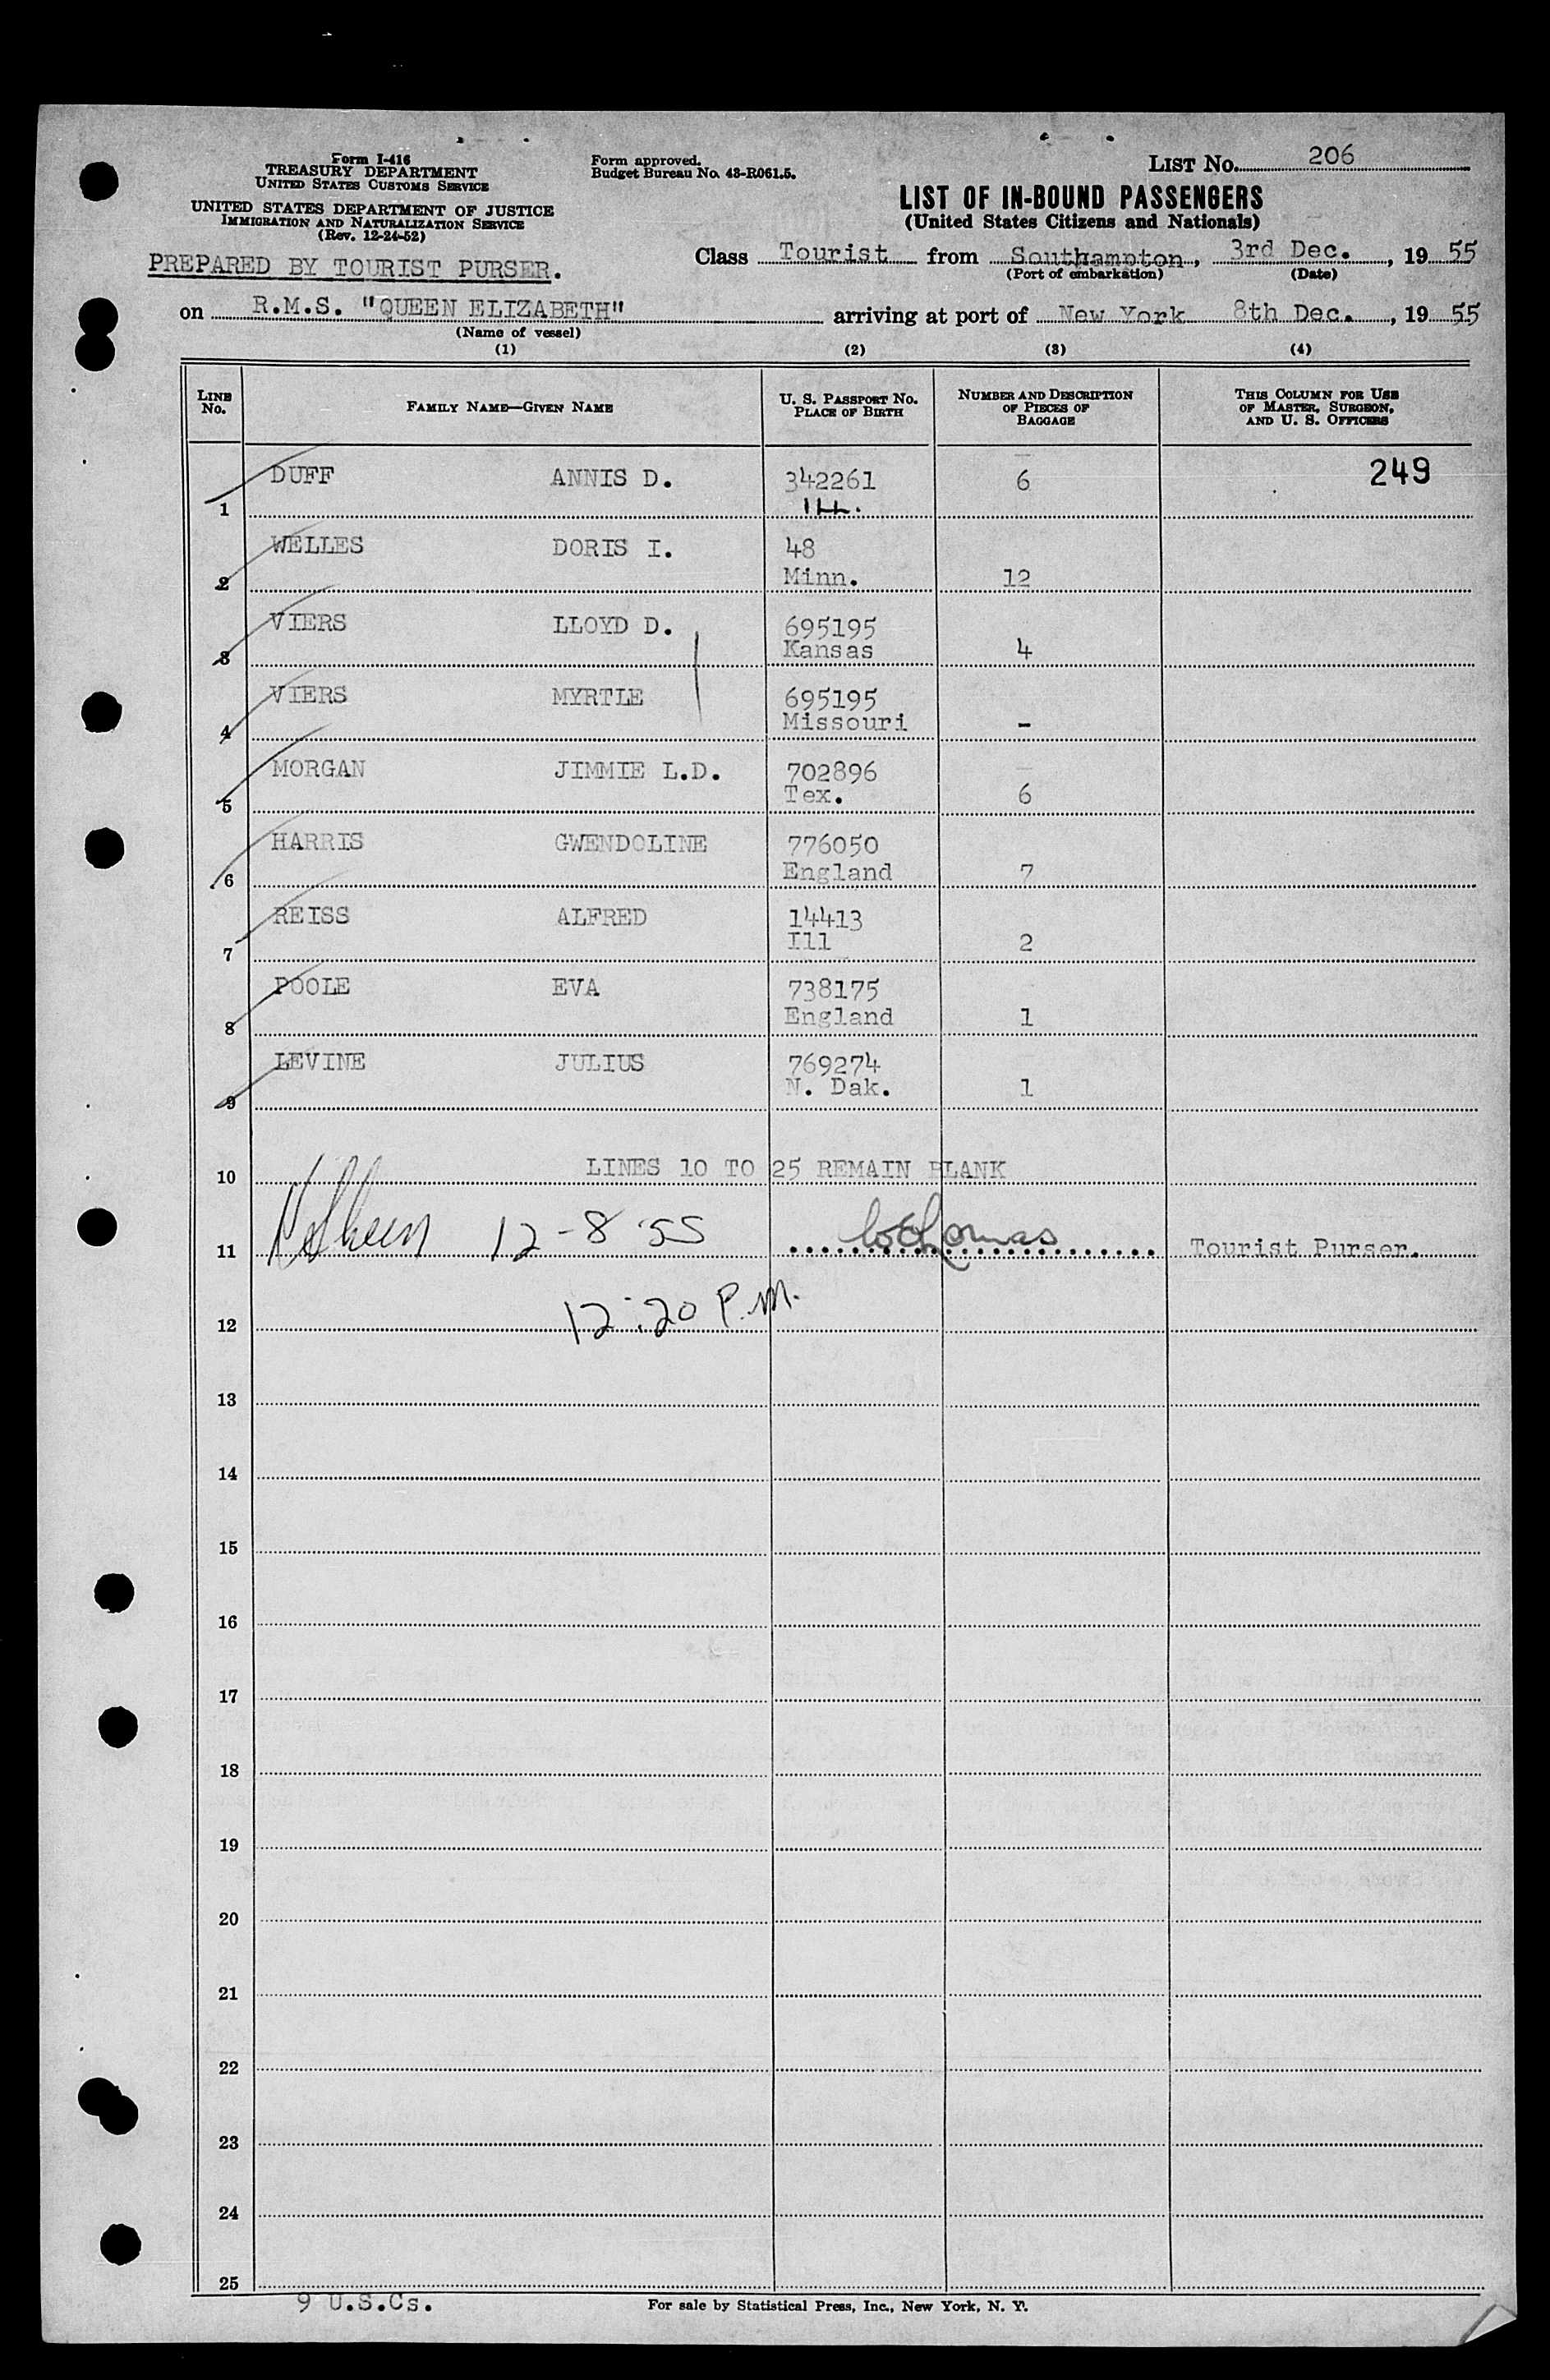 Form I-416
TREASURY DEPARTMENT
UNITED STATES CUSTOMS SERVICE
UNITED STATES DEPARTMENT OF JUSTICE
IMMIGRATION AND NATURALIZATION SERVICE
(Rev. 12-24-52)
Form approved.
Budget Bureau No. 43-R061.5.
LIST NO. 206
LIST OF IN-BOUND PASSENGERS
(United States Citizens and Nationals)
PREPARED BY TOURIST PURSER.
Class Tourist from Southampton, 3rd Dec., 1955
(Port of embarkation) (Date)
on R.M.S. "QUEEN ELIZABETH" arriving at port of New York 8th Dec., 1955
(Name of vessel)
(1) (2) (3) (4)
LINE No. FAMILY NAME—GIVEN NAME U. S. PASSPORT NO. PLACE OF BIRTH NUMBER AND DESCRIPTION OF PIECES OF BAGGAGE THIS COLUMN FOR USE OF MASTER, SURGEON, AND U. S. OFFICERS
1 DUFF ANNIS D. 342261 6 249
ILL.
2 WELLES DORIS I. 48
Minn. 12
3 VIERS LLOYD D. 695195
Kansas 4
4 VIERS MYRTLE 695195
Missouri -
5 MORGAN JIMMIE L.D. 702896
Tex. 6
6 HARRIS GWENDOLINE 776050
England 7
7 REISS ALFRED 14413
Ill 2
8 POOLE EVA 738175
England 1
9 LEVINE JULIUS 769274
N. Dak. 1
10 LINES 10 TO 25 REMAIN BLANK
11 12-8-'55 Tourist Purser.
12 12:20 P.M.
13
14
15
16
17
18
19
20
21
22
23
24
25
9 U.S.Cs.
For sale by Statistical Press, Inc., New York, N. Y.